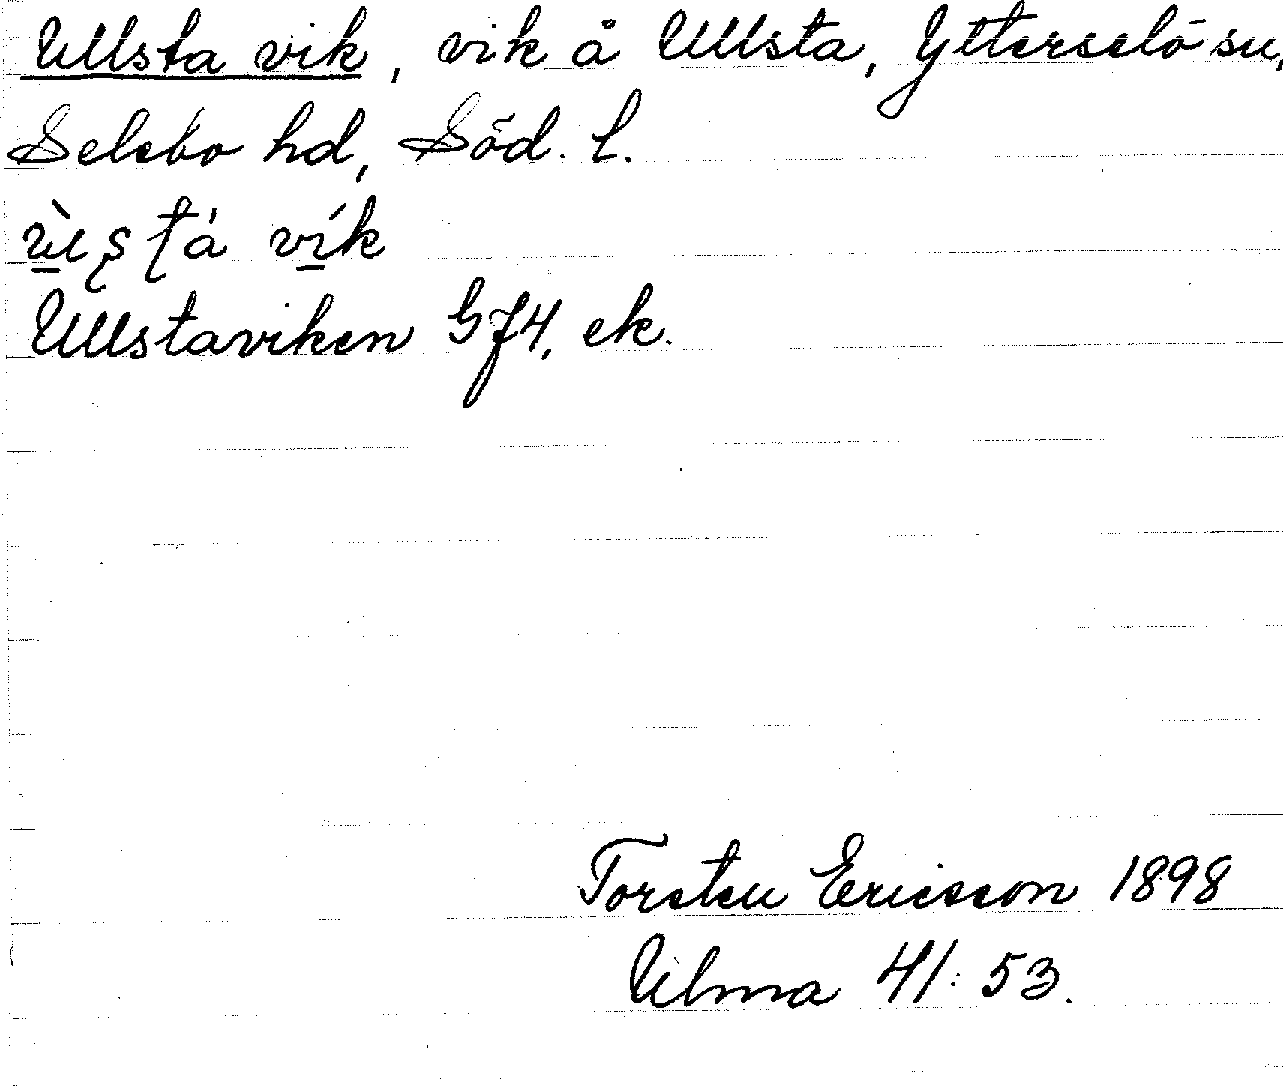 Ullsta vik, vik å Ullsta, Ytterselö sn,
Selebo hd, Söd. l.
vík
Ullstaviken GJ4, ek.
Torsten Ericsson 1898
Ulma 41:53.